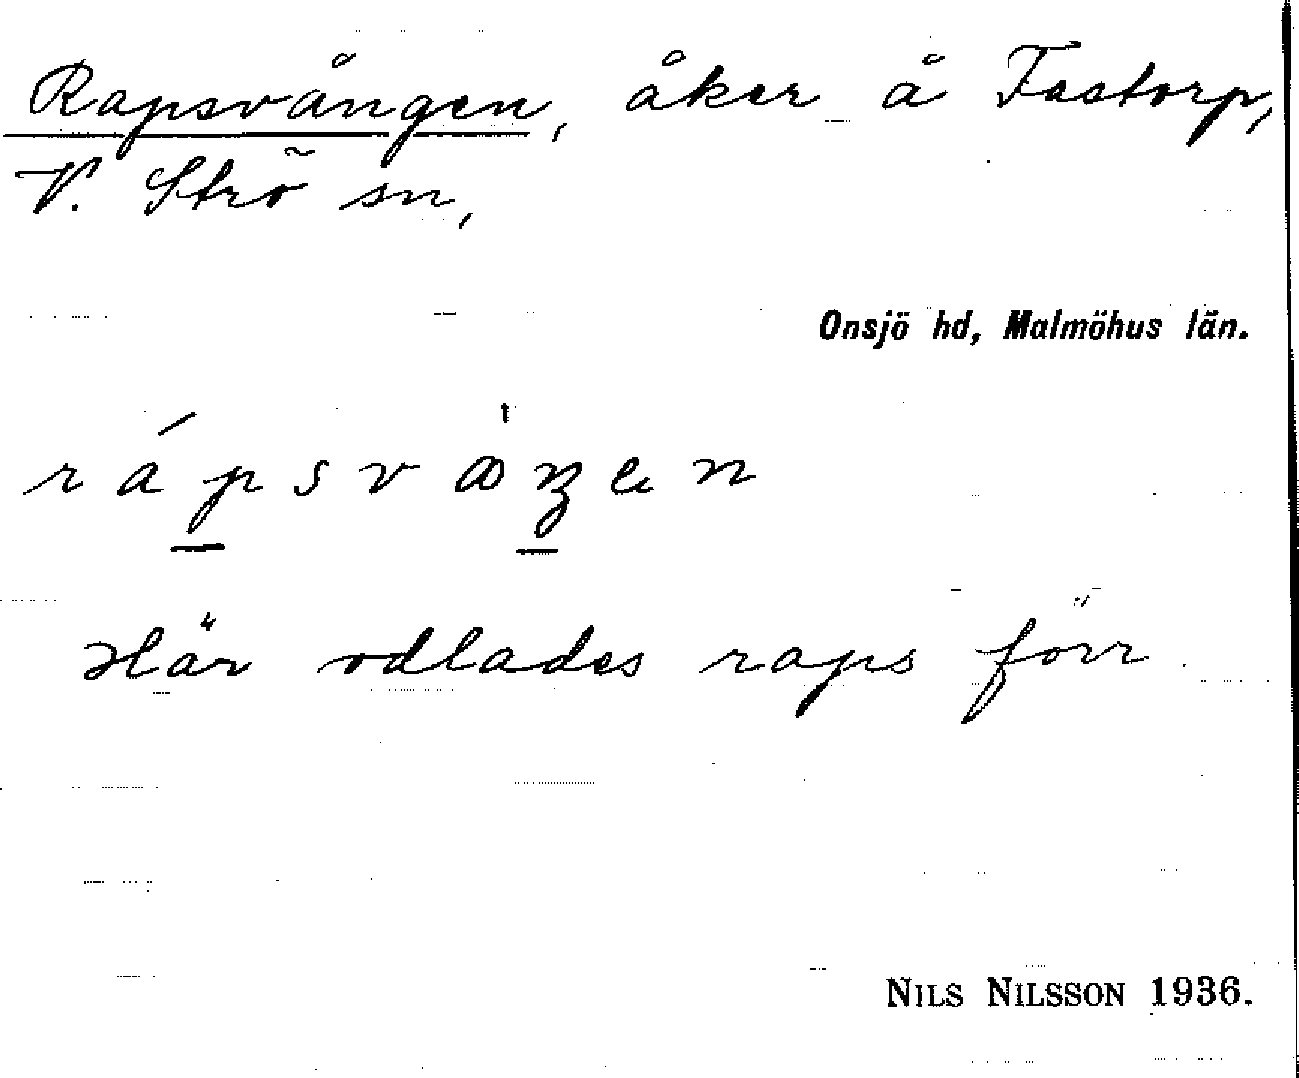 Rapsvången, åker å Fastorp,
V. Strö sn,
Onsjö hd, Malmöhus län.
Här odlades raps förr.
NILS NILSSON 1936.